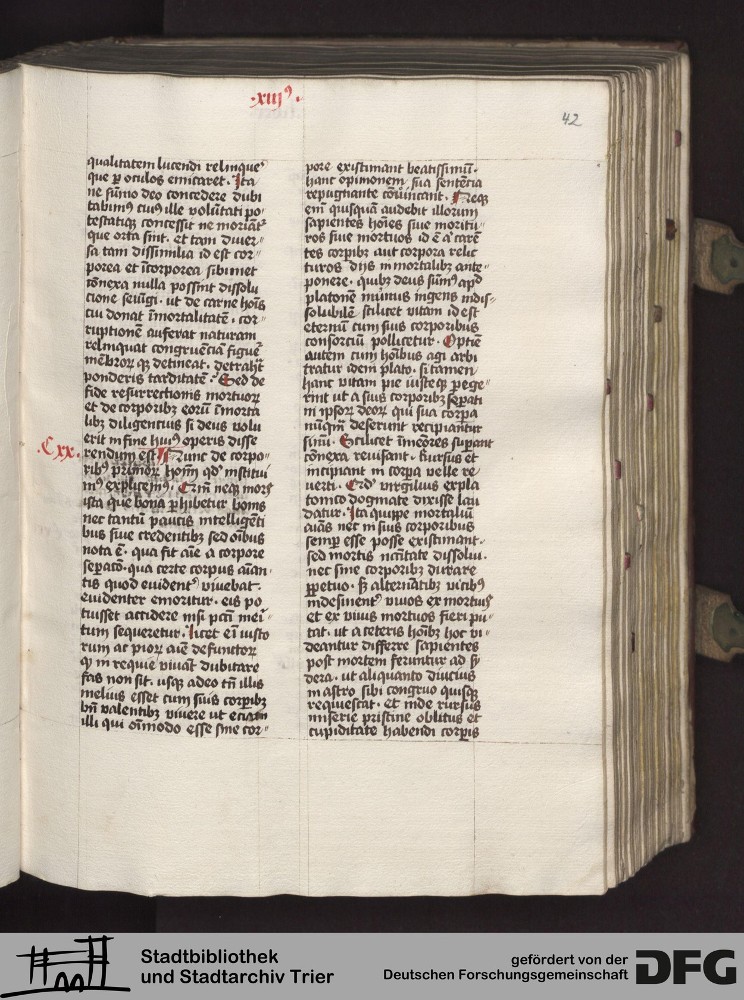 ·xiijꝰ·
42
qualitatem lucendi relinqueʳ
que ꝑ oculos emicaret. Ita
ne sūmo deo concedere dubi
tabimꝰ cuiꝰ ille volūtati po
testatiqꝫ concessit ne moriātʳ
que orta sūt. et tam diuer-
sa tam dissimilia id est cor-
porea et īcorporea sibimet
cōnexa nulla possint dissolu
cione seiūgi. ut de carne hoīs
cui donat īmortalitatē. cor-
ruptionem auferat naturam
relinquat congruēciā figure
mēbrorꝫ qꝫ detineat. detrahat
ponderis tarditatē. Sed de
fide resurrectionis mortuorꝫ
et de corporibꝫ eorū īmorta
libꝫ diligencius si deus volu
erit in fine huiꝰ operis disse
·Cxx· rendum est. Nunc de corpo-
ribꝰ primorꝫ hoīm qd̓ institui
mꝰ explicemꝰ. Qm̄ neqꝫ mors
ista que bona ꝑhibetur bonis
nec tantū paucis intelligēti
bus siue credentibꝫ sed oībus
nota ē. qua fit aīe a corpore
seꝑacō. qua certe corpus aīan-
tis quod euidentʳ viuebat.
euidenter emoritur. eis po
tuisset accidere nisi pctī meri-
tum sequeretur. Licet eī iusto
rum ac piorꝫ aīe defunctorꝫ
qꝫ in requie viuāt dubitare
fas non sit. usqꝫ adeo tn̄ illis
melius esset cum suis corꝑibꝫ
bn̄ valentibꝫ viuere ut eciam
illi qui oīmodo esse sine cor-
pore existimant beatissimū.
hanc opinionem sua sentēcia
repugnante cōuincant. Neqꝫ
em̄ quisquā audebit illorum
sapientes hoīes siue moritu-
ros siue mortuos id ē aʳ carē
tes corꝑibꝫ aut corpora relic
turos dijs īmortalibꝫ ante-
ponere. quibꝫ deus sūmꝰ apd̓
platonē munus ingens indis-
solubilē scilicet vitam id est
eternū cum suis corporibus
consorciū pollicetur. Optie
autem cum hoībus agi arbi
tratur idem plato. si tamen
hanc vitam pie iusteqꝫ ꝑege-
rint ut a suis corporibꝫ seꝑati
in ipsorꝫ deorꝫ qui sua corꝑa
nūqm̄ deserunt recipiantur
sinū. Scilicet īmēores supant
cōnexa reuisant. Rursus et
incipiant in corꝑa velle re
uerti. Qd̓ virgilius ex pla
tonico dogmate dixisse lau
datur. Ita quippe mortaliū
aīas nec in suis corporibus
semꝑ esse posse existimant.
sed mortis ncc̄itate dissolui.
nec sine corporibꝫ durare
ꝑpetuo. sꝫ alternātibꝫ vicibꝰ
indesinentʳ viuos ex mortuis
et ex viuis mortuos fieri pu-
tat. ut a ceteris hoībꝫ hoc vi-
deantur differre sapientes
post mortem feruntur ad sy
dera. ut aliquanto diucius
in astro sibi congruo quisqꝫ
requiescat. et inde rursus
miserie pristine oblitus et
cupiditate habendi corꝑis
Stadtbibliothek
und Stadtarchiv Trier
gefördert von der
Deutschen Forschungsgemeinschaft
DFG